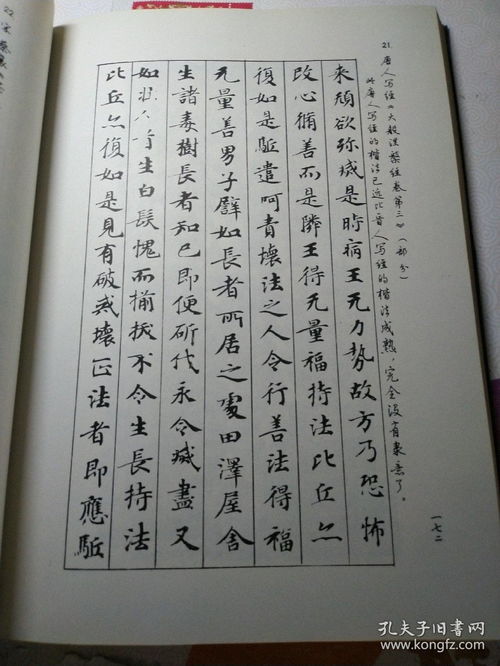 21.唐人写经《大般涅槃经卷第三》（部分）
此唐人写经的楷法已近比晋人写经的楷法成熟，完全没有隶意了。
来頑欲弥烕是時病王无力勢故方乃恐怖
改心脩善而是隣王得无量福持法比丘亦
復如是駈遣呵責壞法之人令行善法得福
无量善男子譬如長者所居之處田澤屋舍
生諸毒樹長者知已即便斫伐永令烕盡又
如壯人首生白髮愧而揃拔不令生長持法
比丘亦復如是見有破戒壞正法者即應駈
一七二
22.
孔夫子旧书网
www.kongfz.com